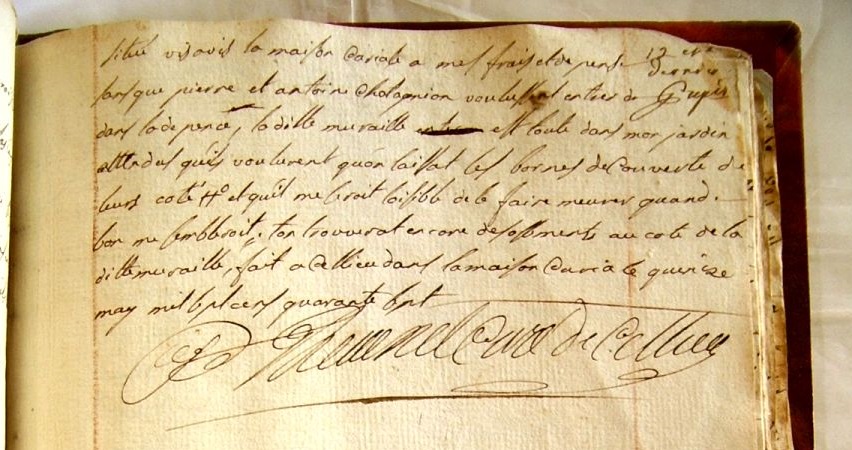 situé visavis la maison curiale a mes frais et depense
sans que pierre et antoine chatagnion voulussent entrer de
dans la depence, la ditte muraille est toute dans mon jardin
attendus quils voulurent quon laissat les bornes decouverte de
leurs coté et quil me seroit loisible de le faire meurer quand
bon me sembleroit, lon trouverat encore des ossements au coté de la
ditte muraille, fait a Cellieu dans la maison curiale quinze
may mil sept cens quarante sept
Thevenet Curé de Cellieu